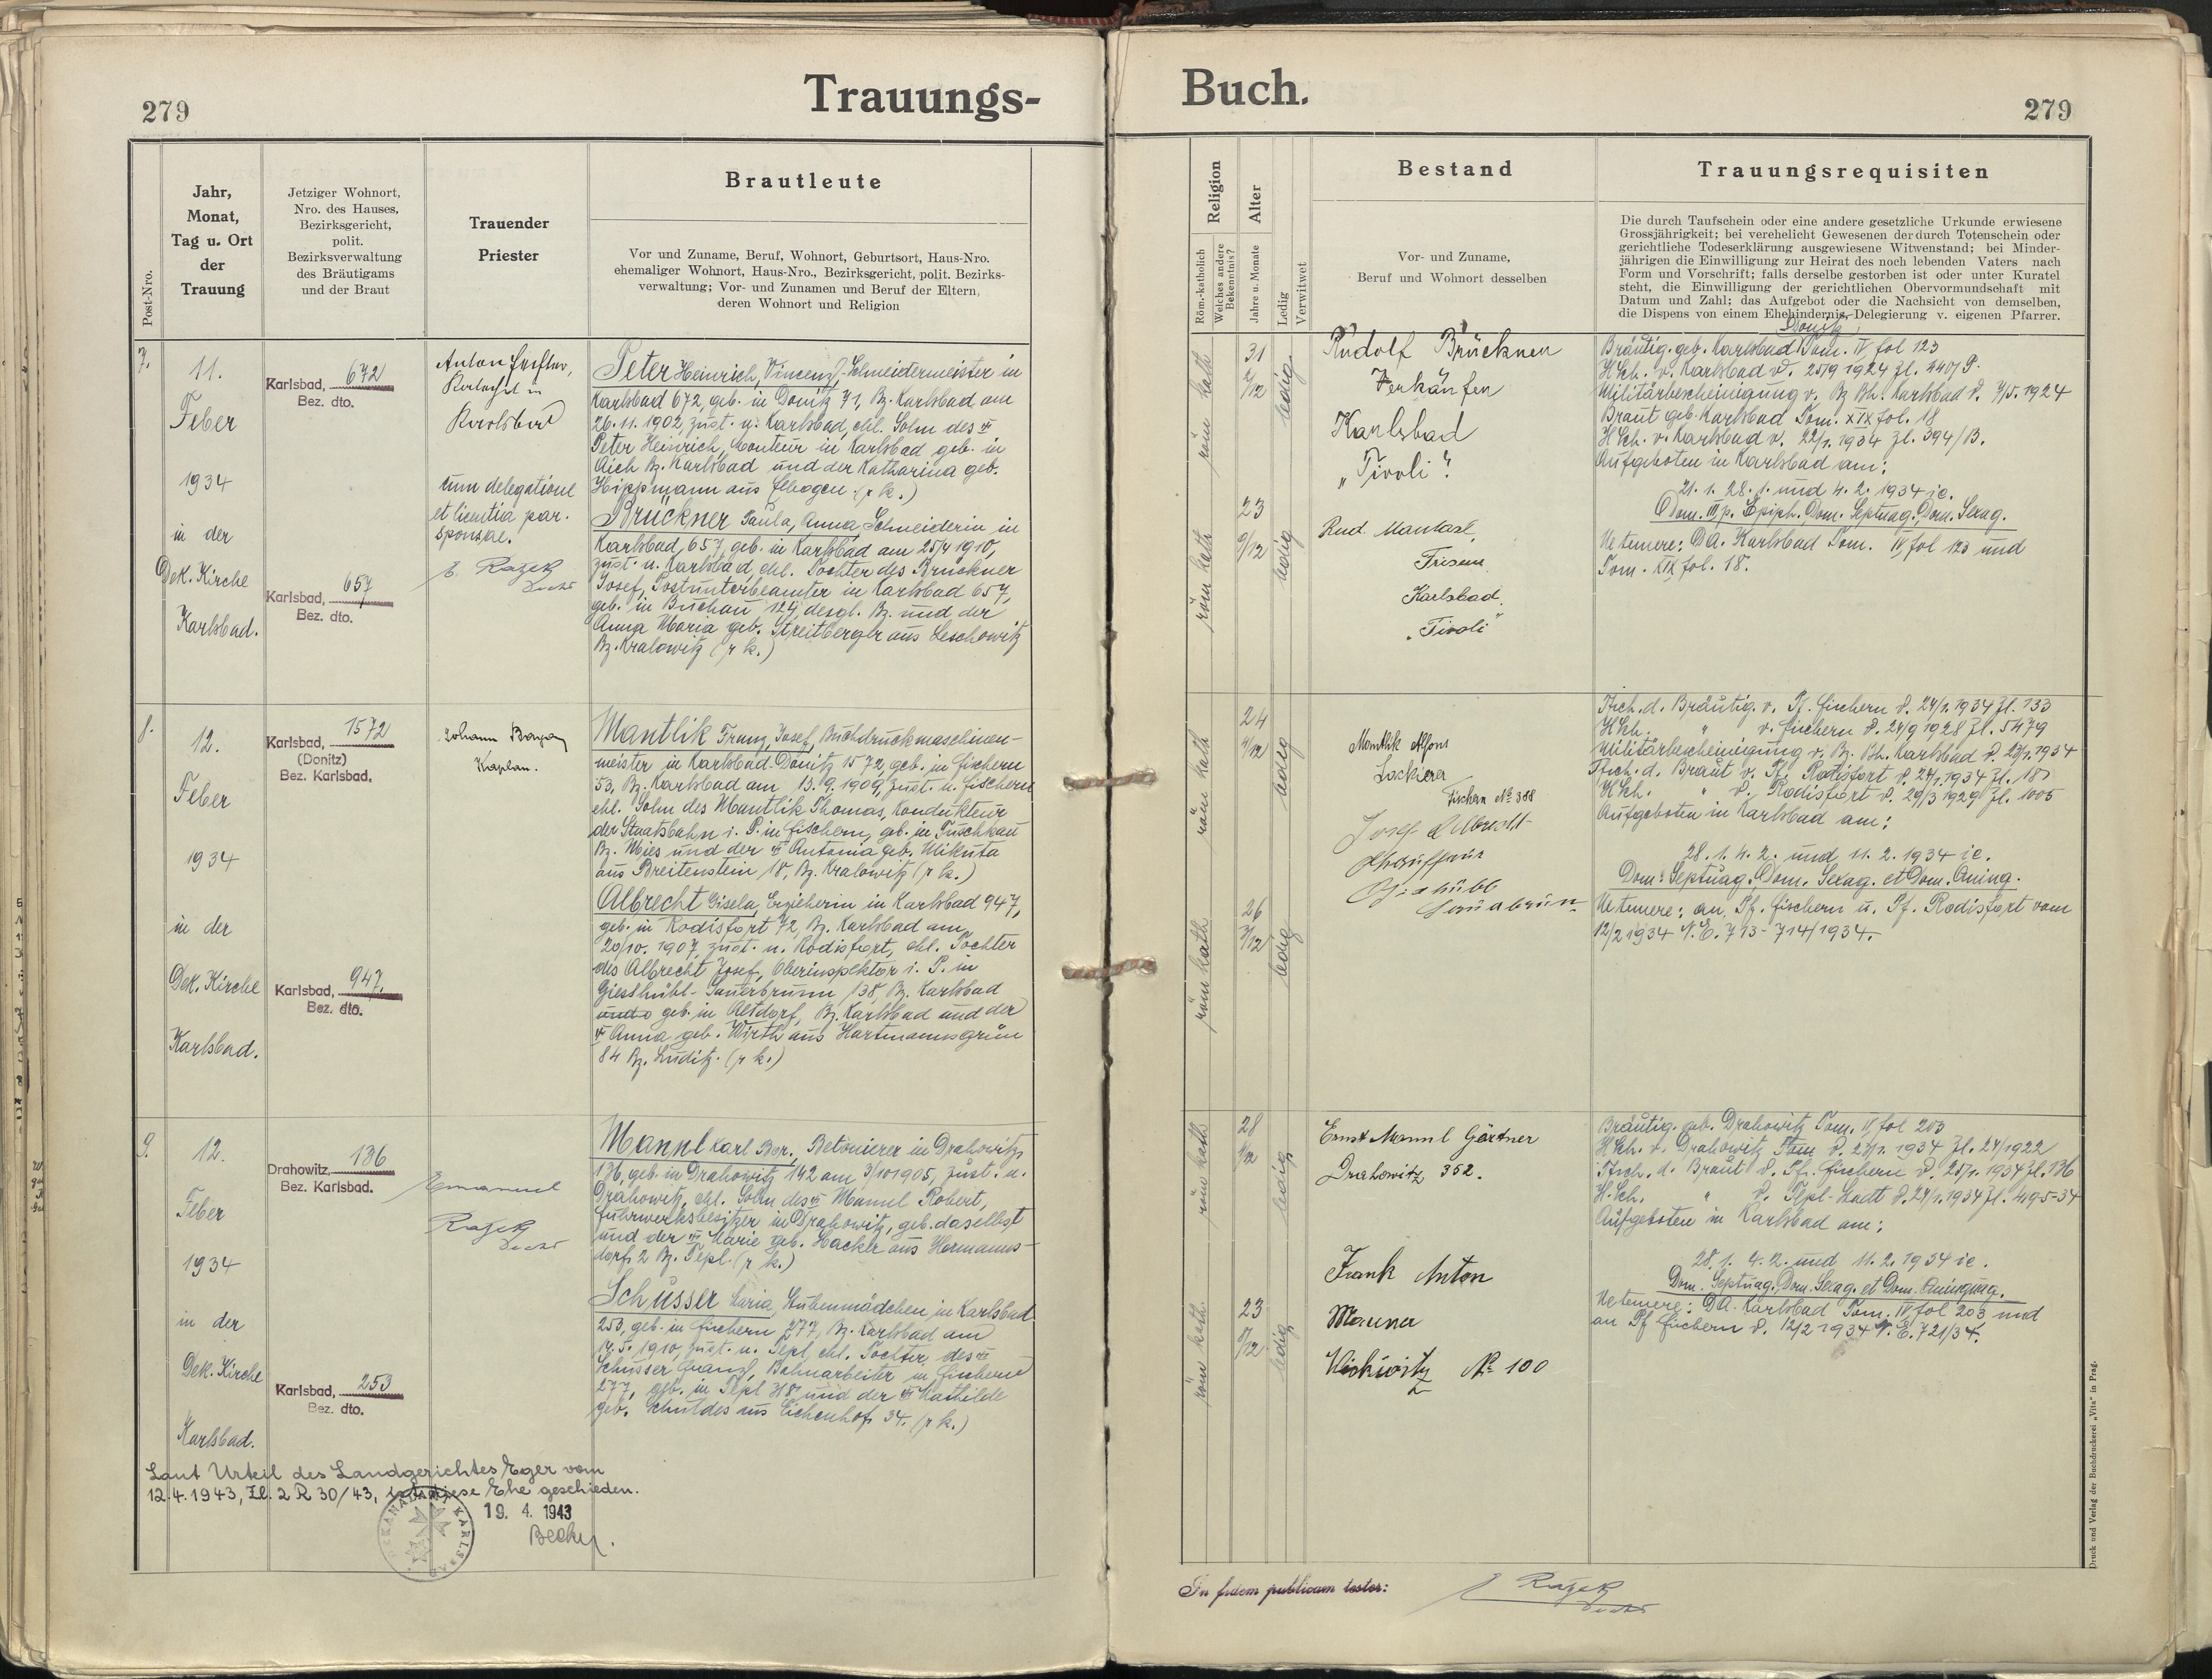 279
Trauungs-
Buch.
279
Post-Nro.
Jahr,
Monat,
Tag u. Ort
der
Trauung
Jetziger Wohnort,
Nro. des Hauses,
Bezirksgericht,
polit.
Bezirksverwaltung
des Bräutigams
und der Braut
Trauender
Priester
Brautleute
Vor und Zuname, Beruf, Wohnort, Geburtsort, Haus-Nro.
ehemaliger Wohnort, Haus-Nro., Bezirksgericht, polit. Bezirks-
verwaltung; Vor- und Zunamen und Beruf der Eltern,
deren Wohnort und Religion
Religion
Röm.-katholich
Welches andere
Bekenntnis?
Alter
Jahre u. Monate
Ledig
Verwitwet
Bestand
Vor- und Zuname,
Beruf und Wohnort desselben
Trauungsrequisiten
Die durch Taufschein oder eine andere gesetzliche Urkunde erwiesene
Grossjährigkeit; bei verehelicht Gewesenen der durch Totenschein oder
gerichtliche Todeserklärung ausgewiesene Witwenstand; bei Minder-
jährigen die Einwilligung zur Heirat des noch lebenden Vaters nach
Form und Vorschrift; falls derselbe gestorben ist oder unter Kuratel
steht, die Einwilligung der gerichtlichen Obervormundschaft mit
Datum und Zahl; das Aufgebot oder die Nachsicht von demselben,
die Dispens von einem Ehehindernis, Delegierung v. eigenen Pfarrer.
7.
11.
Feber
1934
in der
Dek. Kirche
Karlsbad.
Karlsbad, 672
Bez. dto.
Karlsbad, 657
Bez. dto.
Anton
Karlsbad
cum delegatione
et licentia par.
sponsae.
Peter Heinrich, Vincenz, Schneidermeister in
Karlsbad 672, geb. in Donitz 71, Bz. Karlsbad am
26.11.1902, zust. n. Karlsbad, ehl. Sohn des
Peter Heinrich, Monteur in Karlsbad geb. in
Aich Bz. Karlsbad und der Katharina geb.
Hippmann aus Elbogen. (r k.)
Brückner Paula, Anna, Schneiderin in
Karlsbad, 657, geb. in Karlsbad am 25/4 1910,
zust. n. Karlsbad, ehl. Tochter des Brückner
Josef, Postunterbeamter in Karlsbad 657,
geb. in Buchau 124, desgl. Bz. und der
Anna Maria geb. Streitberger aus Leschowitz
Bz. Kralowitz (r k.)
röm kath
31
2/12
ledig
röm kath
23
9/12
ledig
Rudolf Brückner
Verkäufer
Karlsbad
"Tivoli".
Rud.
Friseur
Karlsbad,
"Tivoli"
Donitz
Bräutig. geb. Karlsbad Tom. IV fol 123
HSch. v. Karlsbad v. 25/9 1924 Zl. 440/P.
Militärbescheinigung v. Bz. Bh. Karlsbad v. 7/5. 1924
Braut geb. Karlsbad Tom. XIX fol. 18
HSch. v. Karlsbad v. 22/1. 1934 Zl. 394/B.
Aufgeboten in Karlsbad am:
21. 1. 28. 1. und 4. 2. 1934 ie.
Dom. III p. Epiph. Dom. Septuag. Dom. Sexag.
Ne temere: DA. Karlsbad Tom. IV fol 123 und
Tom. XIX fol. 18.
8.
12.
Feber
1934
in der
Dek. Kirche
Karlsbad.
Karlsbad, 1572
(Donitz)
Bez. Karlsbad.
Karlsbad, 947.
Bez. dto.
Johann
Kaplan.
Mantlik Franz, Josef, Buchdruckmaschinen-
meister in Karlsbad-Donitz 1572, geb. in Fischern
53, Bz. Karlsbad am 13.9.1909, zust. n. Fischern
ehl. Sohn des Mantlik Thomas, Kondukteur
der Staatsbahn i. P. in Fischern, geb. in Tuschkau
Bz. Mies und der Antonia geb. Mikuta
aus Breitenstein 18, Bz. Kralowitz (r k.)
Albrecht Gisela, Erzieherin in Karlsbad 947,
geb. in Rodisfort 72, Bz. Karlsbad am
20/10. 1907, zust. n. Rodisfort, ehl. Tochter
des Albrecht Josef, Oberinspektor i. P. in
Giesshübl-Sauerbrunn 138, Bz. Karlsbad
und geb. in Altdorf, Bz. Karlsbad und der
Anna geb. Wirth aus Hartmannsgrün
84 Bz. Luditz. (r k.)
röm kath
24
4/12
ledig
röm kath
26
3/12
ledig
Mantlik Alfons
Lackierer
Fischern No 388
Josef Albrecht
Chauffeur
Giesshübl
Sauerbrunn
Tsch. d. Bräutig. v. Pf. Fischern v. 24/1. 1934 Zl. 133
HSch. " v. Fischern v. 24/9 1928 Zl. 5479
Militärbescheinigung v. Bz. Bh. Karlsbad v. 23/1. 1934
Tsch. d. Braut v. Pf. Rodisfort v. 24/1. 1934 Zl. 18
HSch. " v. Rodisfort v. 29/3 1929 Zl. 1005
Aufgeboten in Karlsbad am:
28. 1. 4. 2. und 11. 2. 1934 ie.
Dom. Septuag. Dom. Sexag. et Dom. Quinq.
Ne temere: an Pf. Fischern u. Pf. Rodisfort vom
12/2 1934 N. E. 713-714/1934.
9.
12.
Feber
1934
in der
Dek. Kirche
Karlsbad.
Drahowitz, 136
Bez. Karlsbad.
Karlsbad, 253
Bez. dto.
Emanuel
Mannl Karl Bor., Betonierer in Drahowitz
136, geb. in Drahowitz 142 am 3/10 1905, zust. n.
Drahowitz, ehl. Sohn des Mannl Robert,
Fuhrwerksbesitzer in Drahowitz, geb. daselbst
und der Marie geb. Hacker aus Hermanns-
dorf 2 Bz. Tepl. (r k.)
Schusser Maria, Stubenmädchen in Karlsbad
253, geb. in Fischern 277, Bz. Karlsbad am
14. 5. 1910, zust. n. Tepl, ehl. Tochter des
Schusser Franz, Bahnarbeiter in Fischern
277, geb. in Tepl 318 und der Mathilde
geb. Schuldes aus Eichenhof 34. (r k.)
röm kath
28
ledig
röm kath
23
8/12
ledig
Ernst Mannl Gärtner
Drahowitz 352.
Frank Anton
Maurer
No 100
Bräutig. geb. Drahowitz Tom. IV fol 203
HSch. v. Drahowitz v. 23/1. 1934 Zl. 24/1922
Tsch. d. Braut v. Pf. Fischern v. 25/1. 1934 Zl. 136
H.Sch. " v. Tepl-Stadt v. 24/1. 1934 Zl. 495-34
Aufgeboten in Karlsbad am:
28. 1. 4. 2. und 11. 2. 1934 ie.
Dom. Septuag. Dom. Sexag. et Dom. Quinquag.
Ne temere: DA. Karlsbad Tom. IV fol 203 und
an Pf Fischern v. 12/2 1934 N. E. 721/34.
Laut Urteil des Landgerichtes Eger vom
12.4.1943, Zl. 2 R 30/43, ist diese Ehe geschieden.
DEKANALAMT KARLSBAD
19. 4. 1943
In fidem publicam testor:
Druck und Verlag der Buchdruckerei „Vita" in Prag.